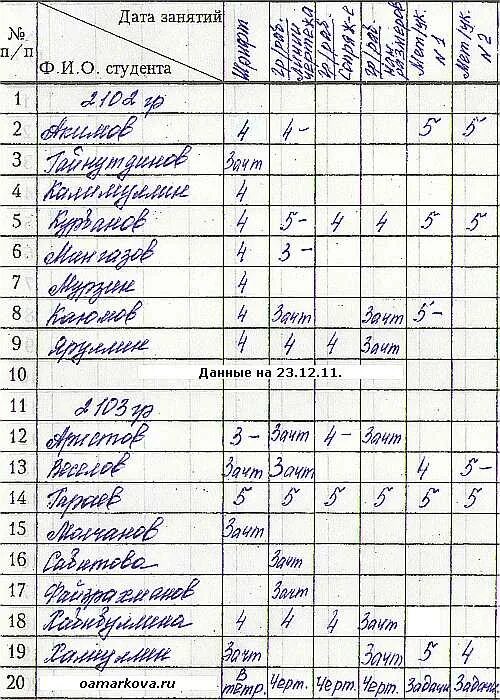 № п/п Дата занятий Ф.И.О. студента Шрифт гр/раб. Линии чертежа гр/раб. Сопряж-е гр/раб. нан. размеров Мет/ук. N 1 Мет/ук. N 2
1 2102 гр
2 Акимов 4 4- 5 5
3 Гайнутдинов Зачт
4 Калимуллин 4
5 Курбанов 4 5- 4 4 5 5
6 Мингазов 4 3-
7 Мурзин 4
8 Каюмов 4 Зачт Зачт 5-
9 Яруллин 4 4 4 Зачт
10 Данные на 23.12.11.
11 2103 гр
12 Аристов 3- Зачт 4- Зачт
13 Веселов Зачт Зачт 4 5-
14 Гараев 5 5 5 5 5 5
15 Молчанов Зачт
16 Сабитова Зачт
17 Файзрахманов Зачт
18 Хайбуллина 4 4 4 Зачт
19 Халиуллин Зачт Зачт 5 4
20 oamarkova.ru В тетр. Черт. Черт. Черт. Задачи Задачи